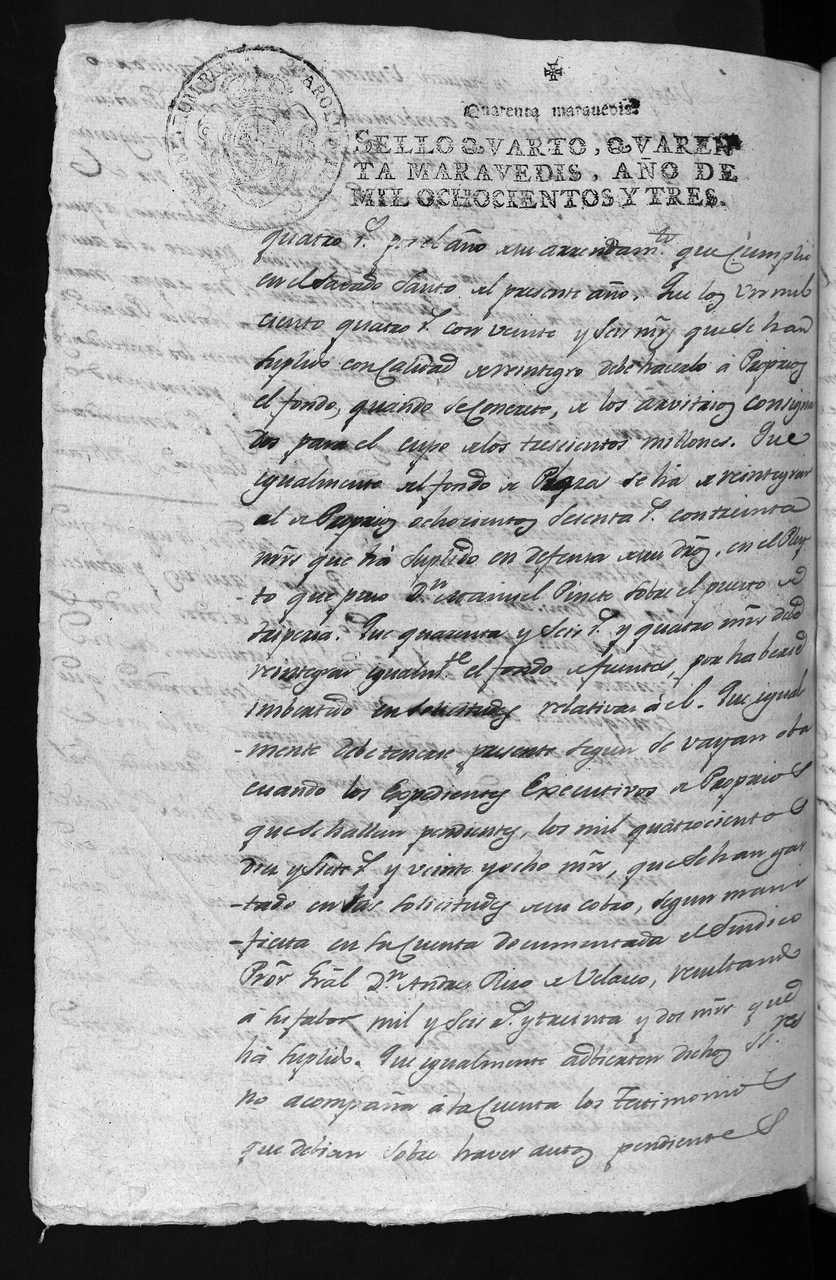 Quarenta maravedis
SELLO QVARTO, QVAREN
TA MARAVEDIS, AÑO DE
MIL OCHOCIENTOS Y TRES.
quatro r.s por el año de su arrendam.to que cumplio
en el Savado Santo del presente año. Que los un mil
ciento quatro r.s con veinte y seis mrs que se han
suplido con Calidad de reintegro debe hacerlo á Propios
el fondo, quando se Concrete, de los arvitrios consigna
dos para el cupo de los trescientos millones. Que
igualmente del fondo de se há de reintegrar
al de Propios ochocientos sesenta r.s con treinta
mrs que há suplido en defensa de sus dros, en el Pley
-to que puso D.n Manuel Pineto sobre el puerto de
Que quarenta y seis r.s y quatro mrs debe
reintegrar igualm.te el fondo de fuentes, por haberse
imbertido en solicitudes relativas á él. Que igual
-mente debe tenerse presente segun se vayan eba
cuando los Expedientes Executivos de Propios
que se hallen pendientes, los mil quatrocientos
diez y siete r.s y veinte y ocho mrs, que se han gas
-tado en las solicitudes de su cobro, segun mani
-fiesta en su Cuenta documentada el Sindico
Pror Gral D.n Andres Rizo de Velasco, resultando
á su fabor mil y seis r.s y treinta y dos mrs que
há suplido. Que igualmente adbierten dichos S.res
no acompaña á la Cuenta los Testimonios
que debian sobre haver autos pendientes